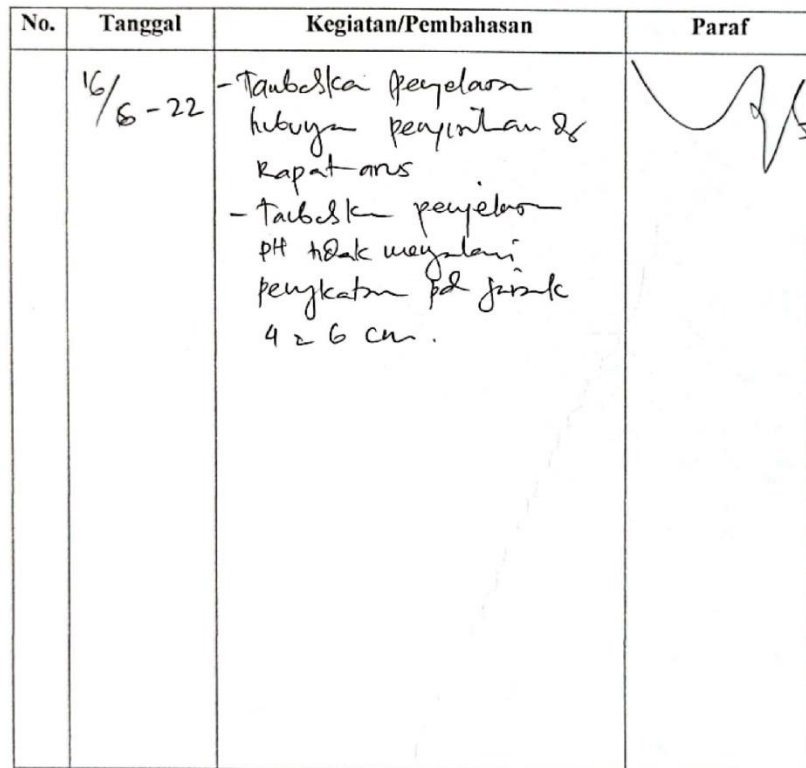 No. Tanggal Kegiatan/Pembahasan Paraf
16/6-22 - Tambahkan penjelasan
hubungan penyisihan dg
Rapat arus
- Tambahkan penjelasan
pH tidak mengalami
pengkatan pd jarak
4 & 6 cm.